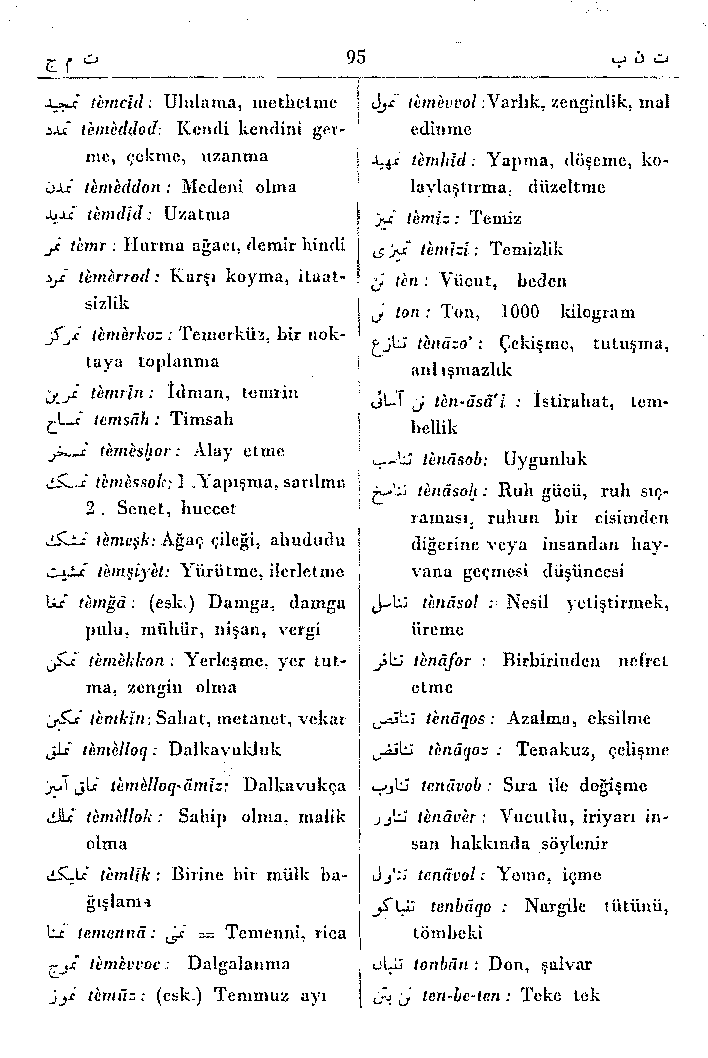 ت م ج 95 ت ن ب
تمجید tèmcîd : Ululama, methetme
تمدد tèmèddod: Kendi kendini ger-
me, çekme, uzanma
تمدن tèmèddon : Medeni olma
تمدید tèmdîd : Uzatma
تمر tèmr : Hurma ağacı, demir hindi
تمرد tèmèrrod : Karşı koyma, itaat-
sizlik
تمرکز tèmèrkoz : Temerküz, bir nok-
taya toplanma
تمرین tèmrîn : İdman, temrin
تمساح temsâh : Timsah
تمسخر tèmèshor : Alay etme
تمسک tèmèssok: 1 .Yapışma, sarılma
2 . Senet, huccet
تمشک tèmeşk: Ağaç çileği, ahududu
تمشیت tèmşiyèt: Yürütme, ilerletme
تمغا tèmğâ : (esk.) Damga, damga
pulu, mühür, nişan, vergi
تمکن tèmèkkon : Yerleşme, yer tut-
ma, zengin olma
تمکین tèmkîn: Sabat, metanet, vekar
تملق tèmèlloq : Dalkavukluk
تملق آمیز tèmèlloq-âmîz: Dalkavukça
تملک tèmèllok : Sahip olma, malik
olma
تملیک tèmlîk : Birine bir mülk ba-
ğışlama
تمنا temennâ : تمنی = Temenni, rica
تموج tèmèvvoc : Dalgalanma
تموز tèmûz : (esk.) Temmuz ayı
تمول tèmèvvol :Varlık, zenginlik, mal
edinme
تمهید tèmhîd : Yapma, döşeme, ko-
laylaştırma, düzeltme
تمیز tèmiz : Temiz
تمیزی tèmîzî : Temizlik
تن tèn : Vücut, beden
تن ton : Ton, 1000 kilogram
تنازع tènâzo' : Çekişme, tutuşma,
anlışmazlık
تن آسائی tèn-âsâ'î : İstirahat, tem-
bellik
تناسب tènâsob: Uygunluk
تناسخ tènâsoh : Ruh gücü, ruh sıç-
raması, ruhun bir cisimden
diğerine veya insandan hay-
vana geçmesi düşüncesi
تناسل tènâsol : Nesil yetiştirmek,
üreme
تنافر tènâfor : Birbirinden nefret
etme
تناقص tènâqos : Azalma, eksilme
تناقض tènâqoz : Tenakuz, çelişme
تناوب tenâvob : Sıra ile değişme
تناور tènâvèr : Vucutlu, iriyarı in-
san hakkında söylenir
تناول tenâvol : Yeme, içme
تنباکو tenbâqo : Nargile tütünü,
tömbeki
تنبان tonbân : Don, şalvar
تن بتن ten-be-ten : Teke tek